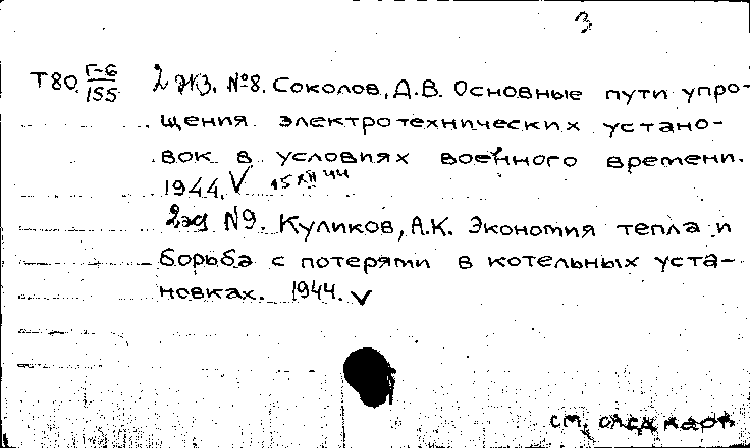 3
Т80 Г-6/155 2 экз. №8. Соколов, Д.В. Основные пути упро-
щения электротехнических устано-
вок в условиях военного времени.
1944. V 15 XII 44
2 экз N9. Куликов, А.К. Экономия тепла и
борьба с потерями в котельных уста-
новках. 1944. V
см. след карт